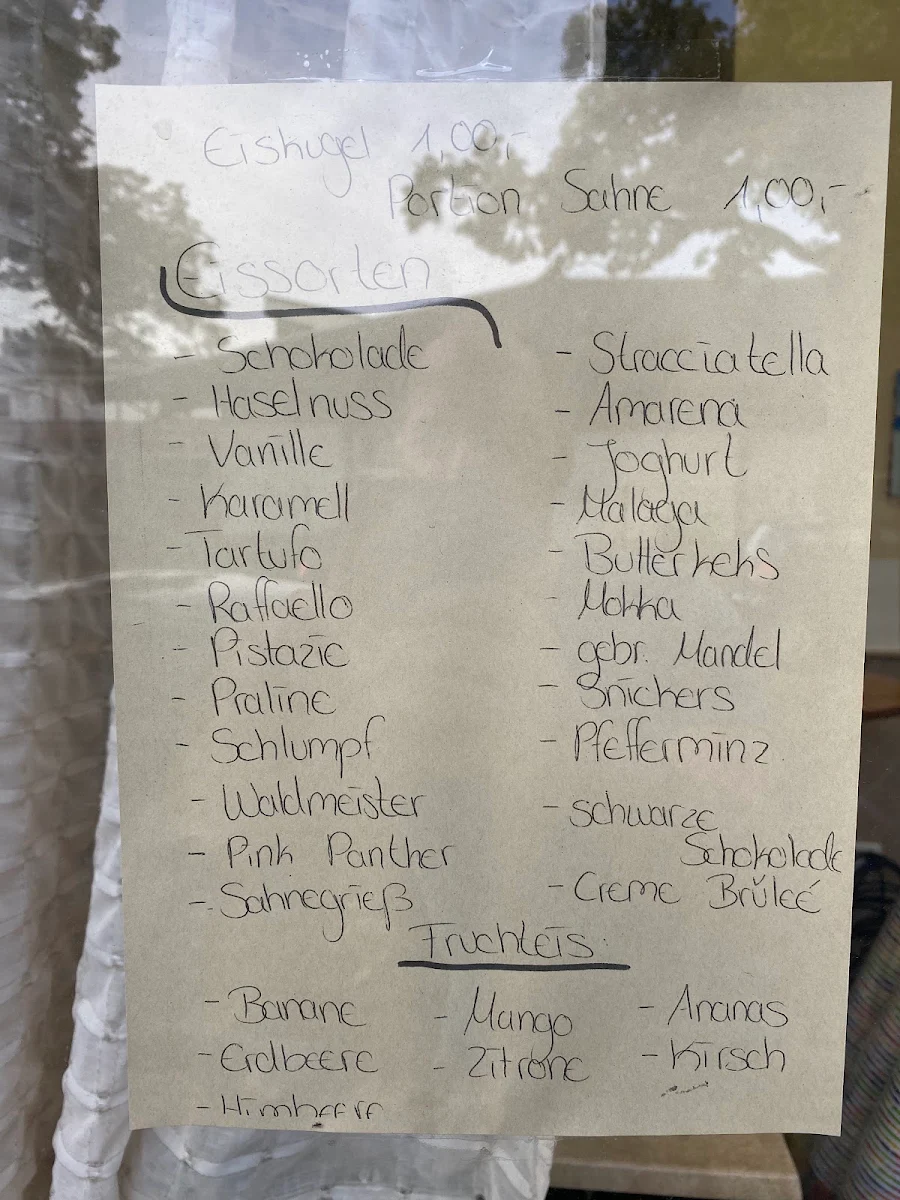 Eiskugel 1,00,-
Portion Sahne 1,00,-
Eissorten
- Schokolade
- Haselnuss
- Vanille
- Karamell
- Tartufo
- Raffaello
- Pistazie
- Praline
- Schlumpf
- Waldmeister
- Pink Panther
- Sahnegrieß
- Stracciatella
- Amarena
- Joghurt
- Malaga
- Butterkeks
- Mokka
- gebr. Mandel
- Snickers
- Pfefferminz
- schwarze
Schokolade
- Creme Brûleé
Fruchteis
- Banane
- Erdbeere
- Himbeere
- Mango
- Zitrone
- Ananas
- Kirsch